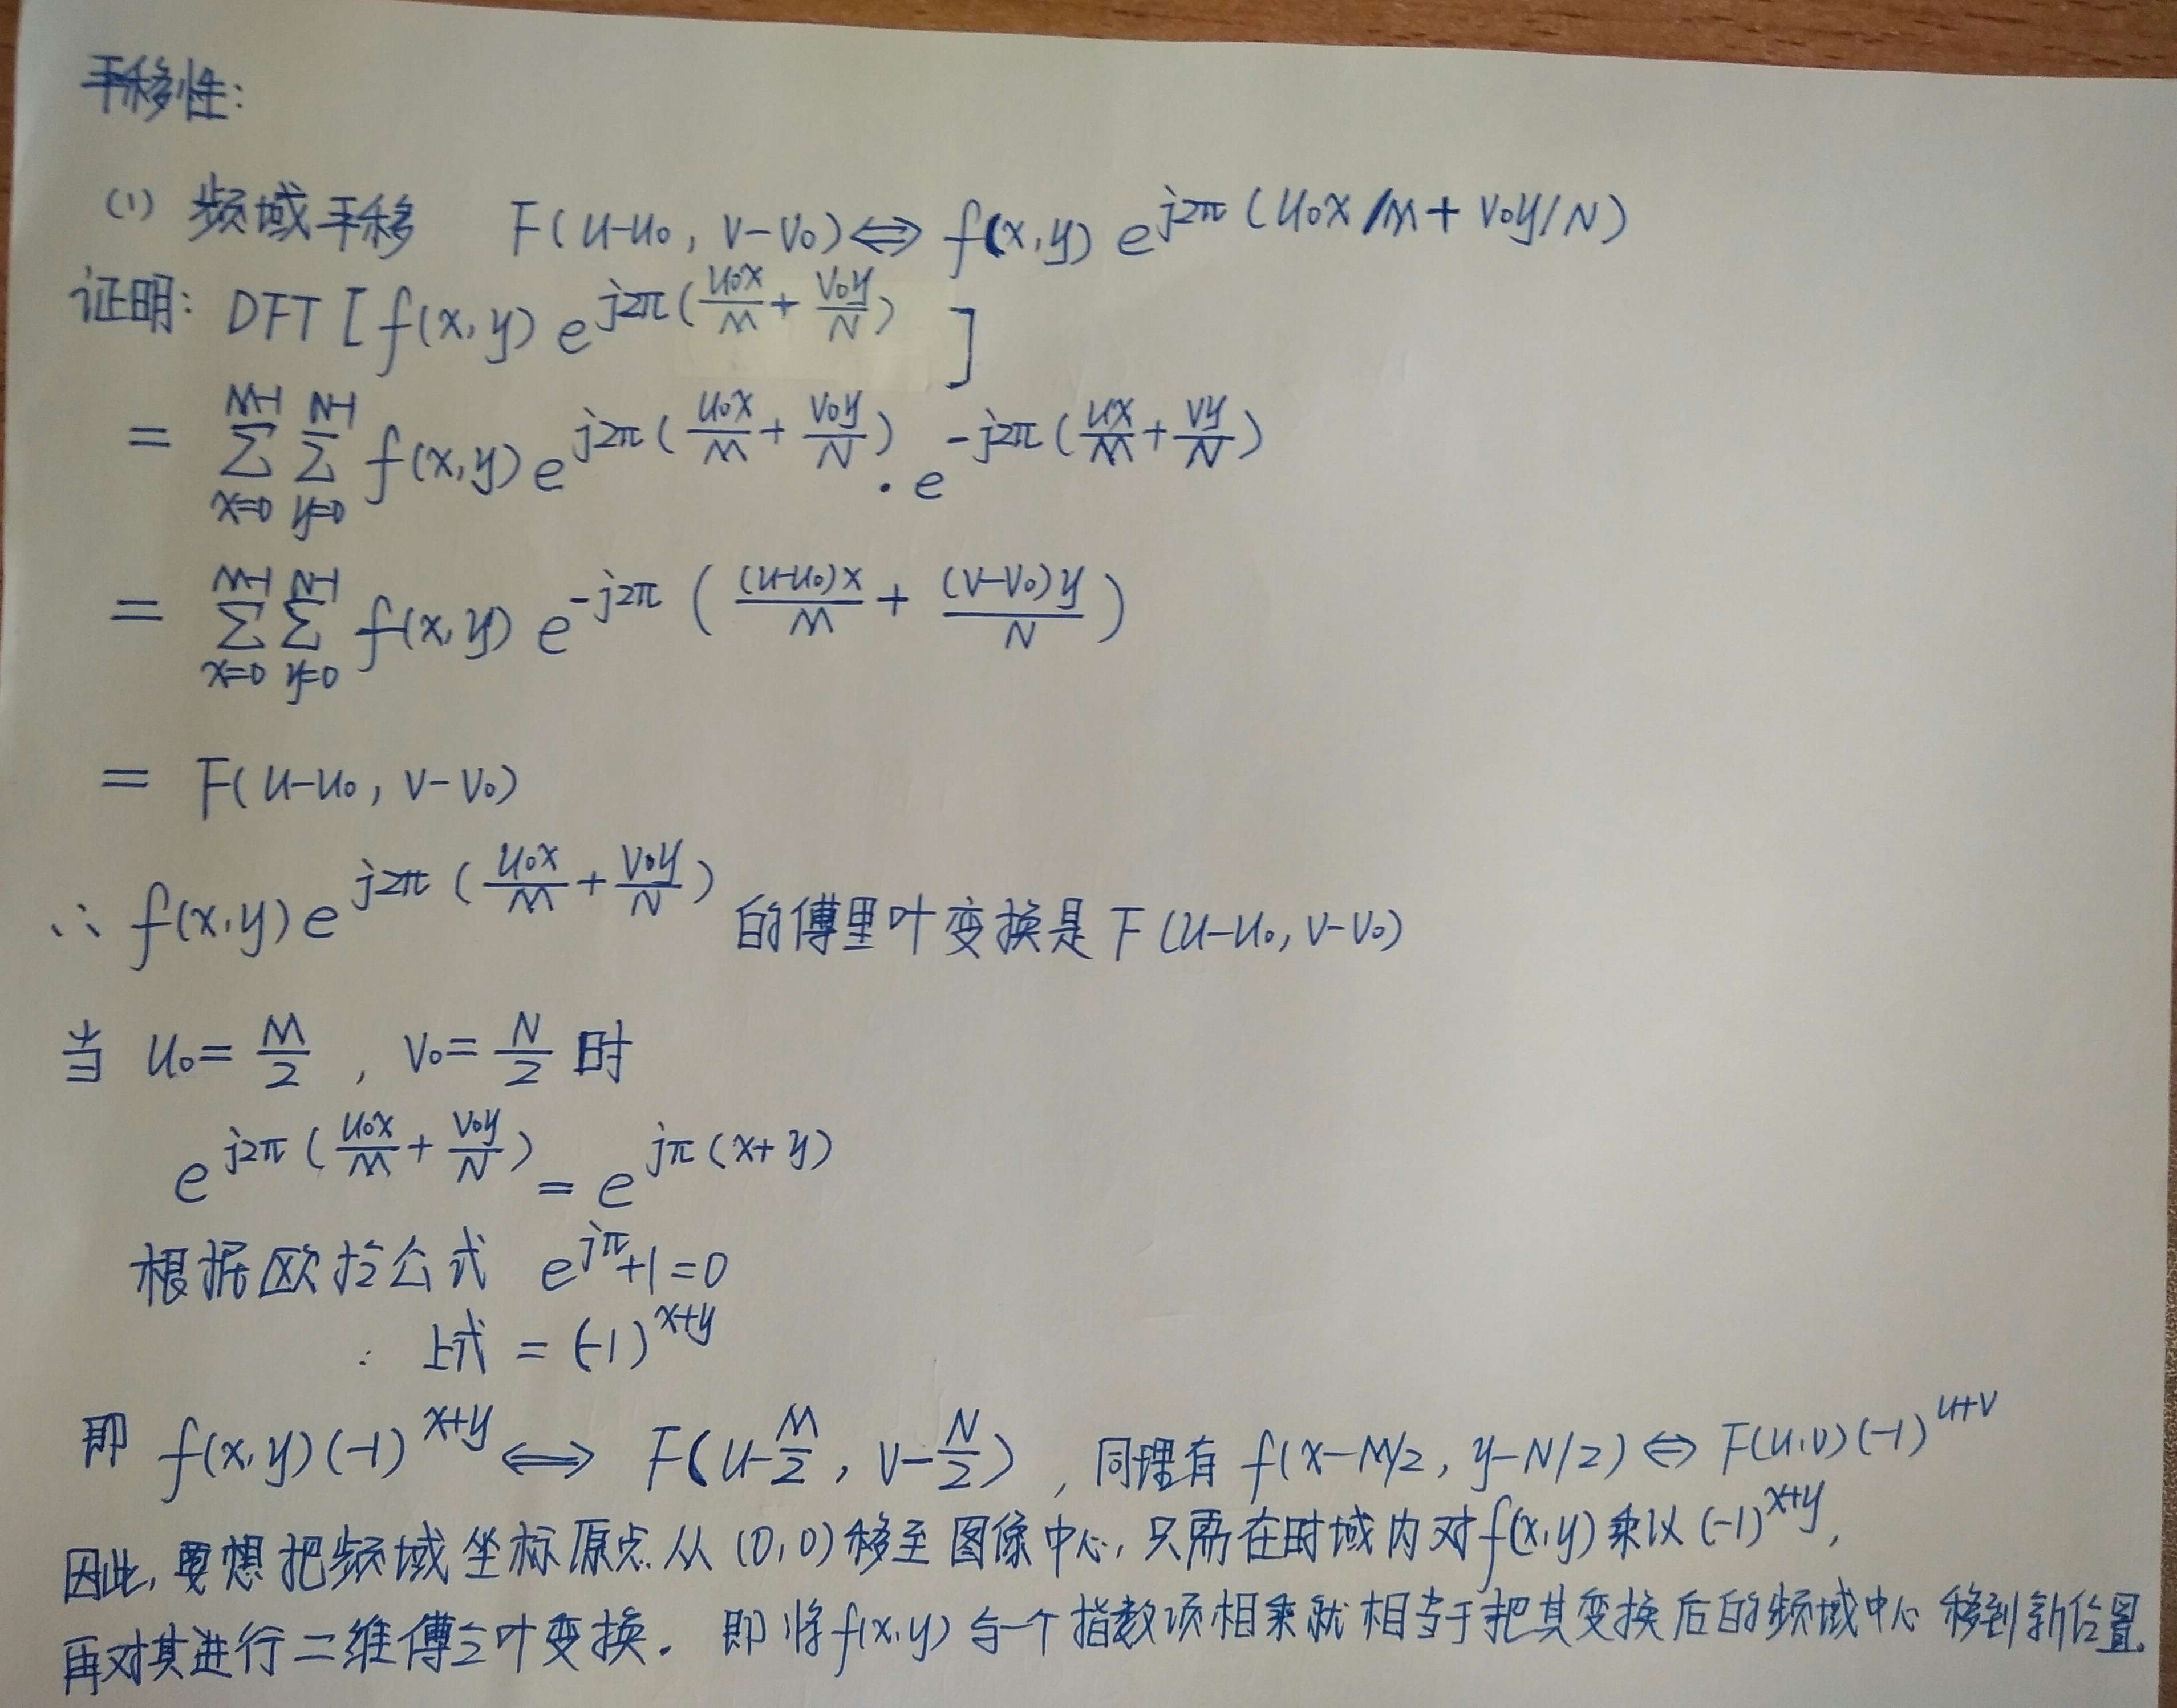 平移性:
(1) 频域平移 F(u-u₀, v-v₀)⇔ f(x,y) e^{j2π(u₀x/M+v₀y/N)}
证明: DFT [f(x,y) e^{j2π(\frac{u₀x}{M}+\frac{v₀y}{N})}]
= \sum_{x=0}^{M-1} \sum_{y=0}^{N-1} f(x,y) e^{j2π(\frac{u₀x}{M}+\frac{v₀y}{N})} · e^{-j2π(\frac{ux}{M}+\frac{vy}{N})}
= \sum_{x=0}^{M-1} \sum_{y=0}^{N-1} f(x,y) e^{-j2π(\frac{(u-u₀)x}{M}+\frac{(v-v₀)y}{N})}
= F(u-u₀, v-v₀)
∴ f(x,y) e^{j2π(\frac{u₀x}{M}+\frac{v₀y}{N})} 的傅里叶变换是 F(u-u₀, v-v₀)
当 u₀=\frac{M}{2}, v₀=\frac{N}{2} 时
e^{j2π(\frac{u₀x}{M}+\frac{v₀y}{N})} = e^{jπ(x+y)}
根据欧拉公式 e^{jπ}+1=0
: 上式 = (-1)^{x+y}
即 f(x,y)(-1)^{x+y} ⇔ F(u-\frac{M}{2}, v-\frac{N}{2}), 同理有 f(x-M/2, y-N/2)⇔ F(u,v)(-1)^{u+v}
因此, 要想把频域坐标原点从 (0,0) 移至图像中心, 只需在时域内对f(x,y) 乘以 (-1)^{x+y},
再对其进行二维傅立叶变换. 即将f(x,y) 与一个指数项相乘就相当于把其变换后的频域中心移到新位置.